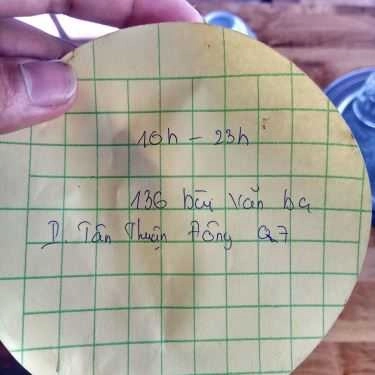 10h - 23h
136 bùi văn ba
P. Tân Thuận Đông Q7